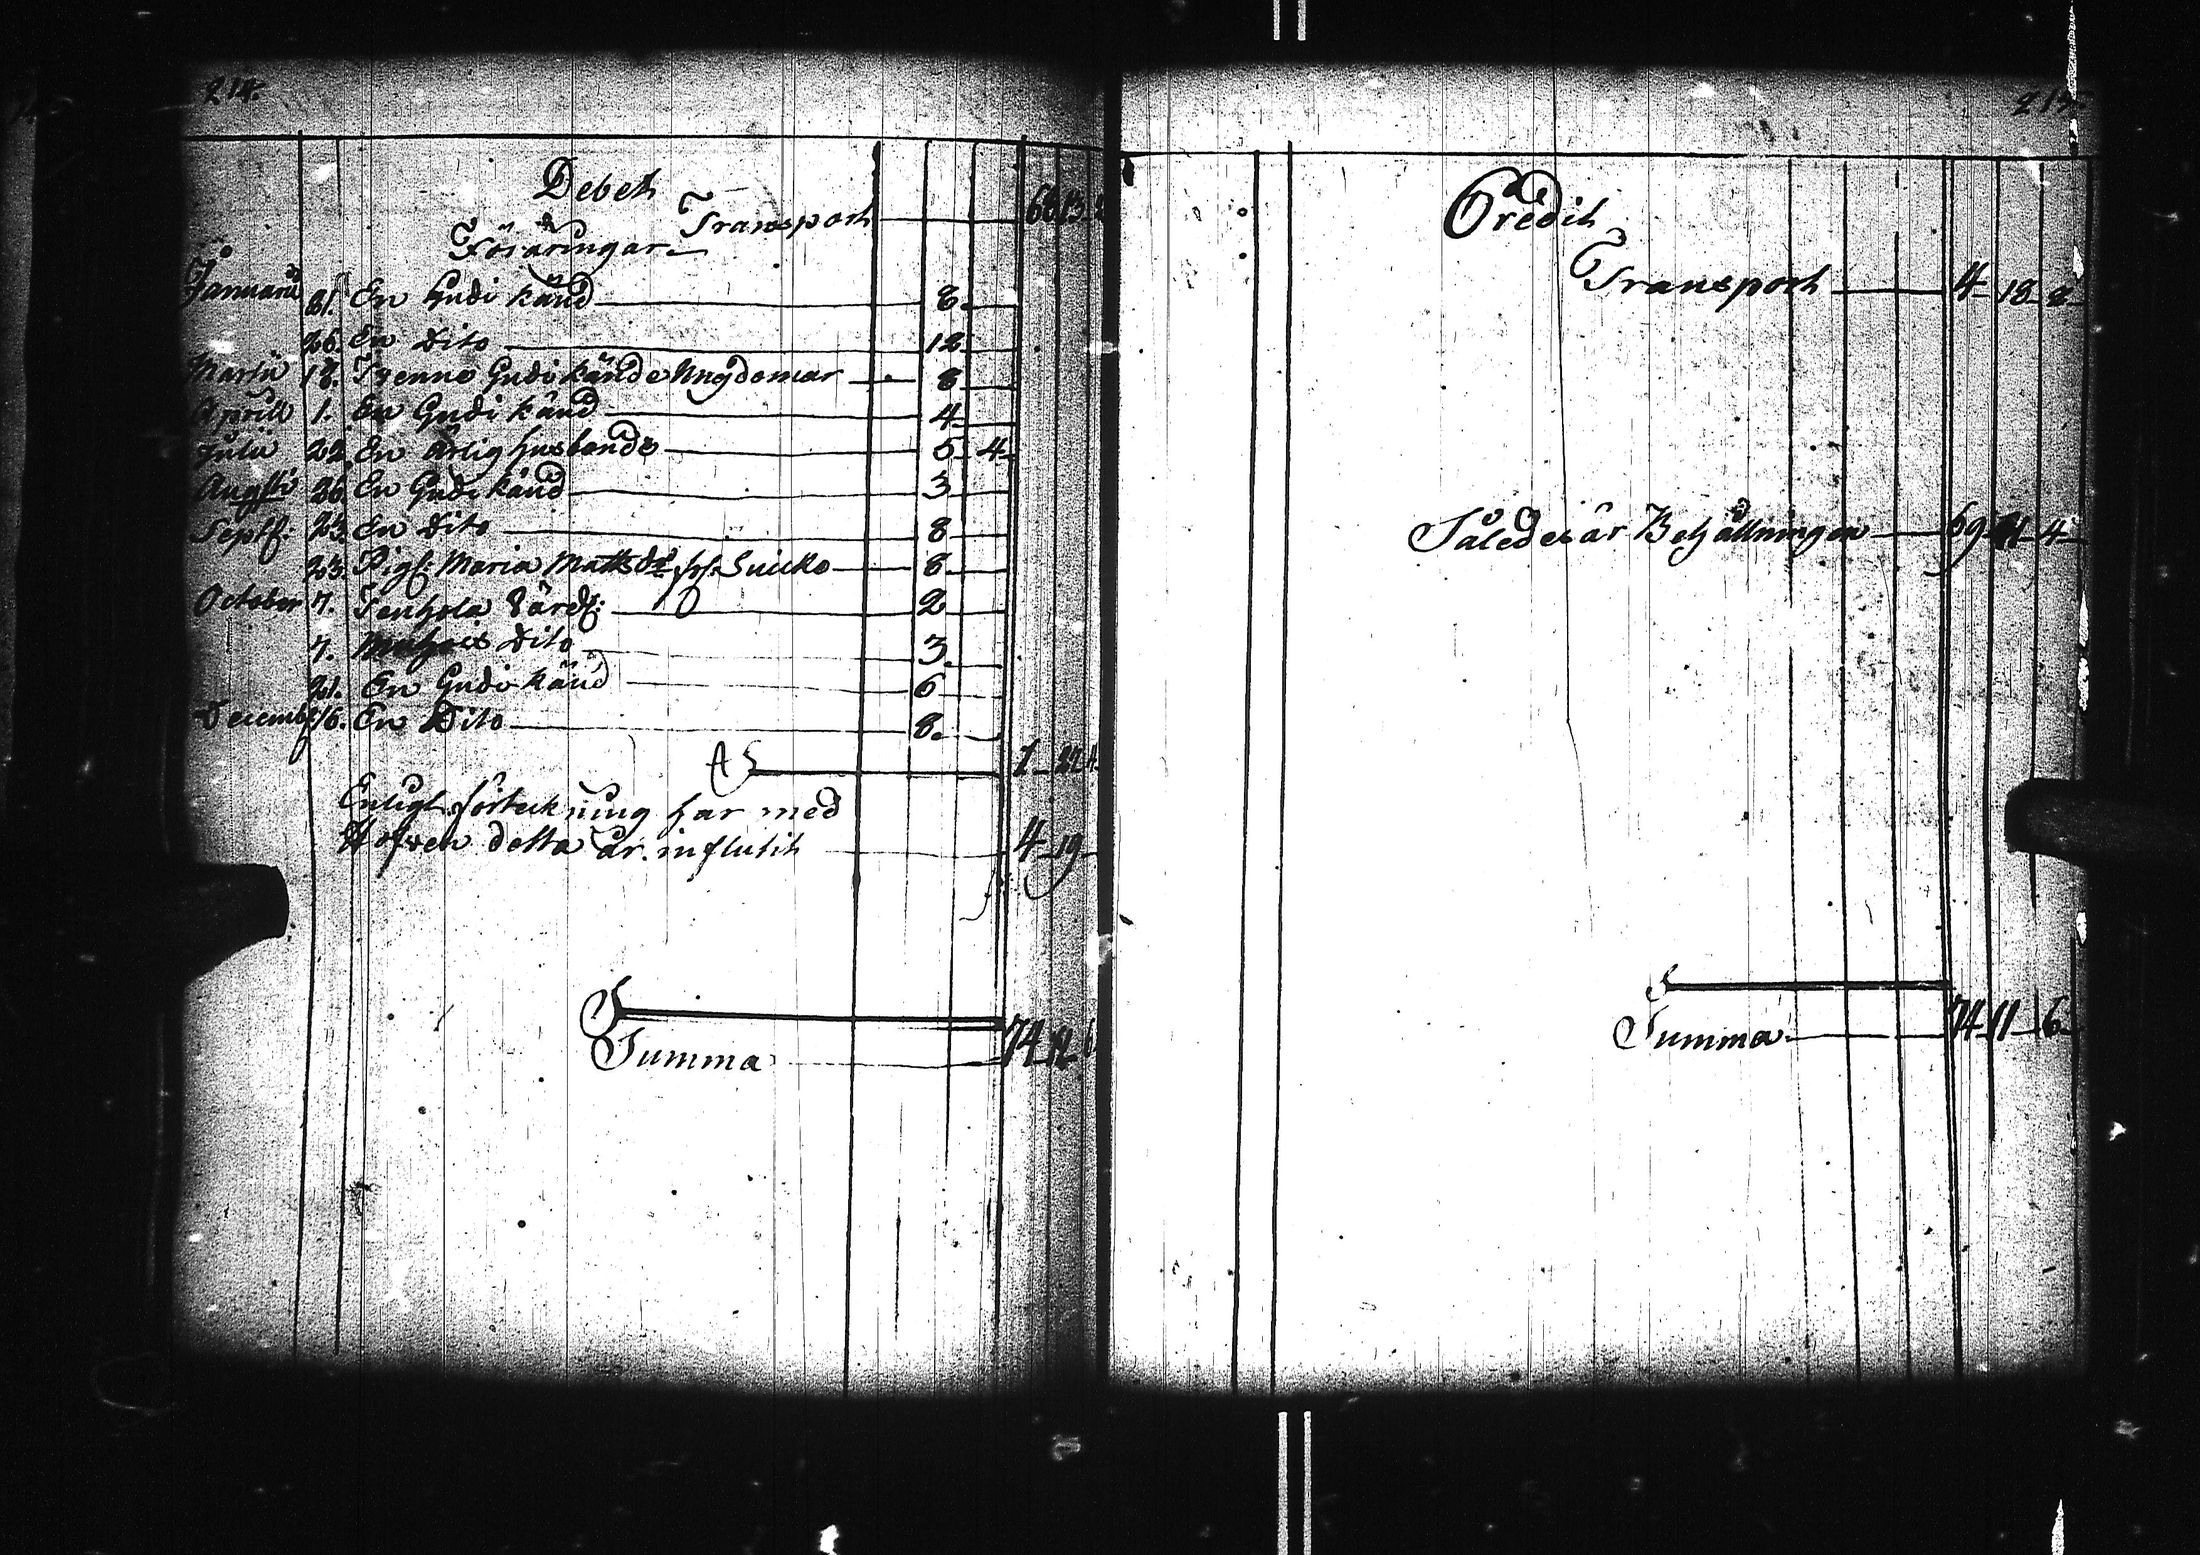 214.
Debet
Transport — 68 13
Föräringar
Januarii 21. En Gudi känd — 8.
26. En Dito — 12
Martii 18. Tvenne Gudi kände Ungdomar — 8
Aprill 1. En Gudi känd — 4
Julii 22. En ärlig husbonde — 5 4
Augsti 26. En Gudi känd — 3
Septf: 23. En Dito — 8
23. Pig: Maria Mattsdr frf. Suicko — 8
October 7. Tenhola Värdf: — 2
7. Dito — 3.
21. En Gudi känd — 6
Decembr 16. En Dito — 8.
1 — 22
Enligt förteckning har med
Håfven detta år influtit — 4 — 19
Summa — 74
215
Credit
Transport — 4 — 18 — 2
Således är Behållningen — 69 4
Summa — 74 — 11 — 6